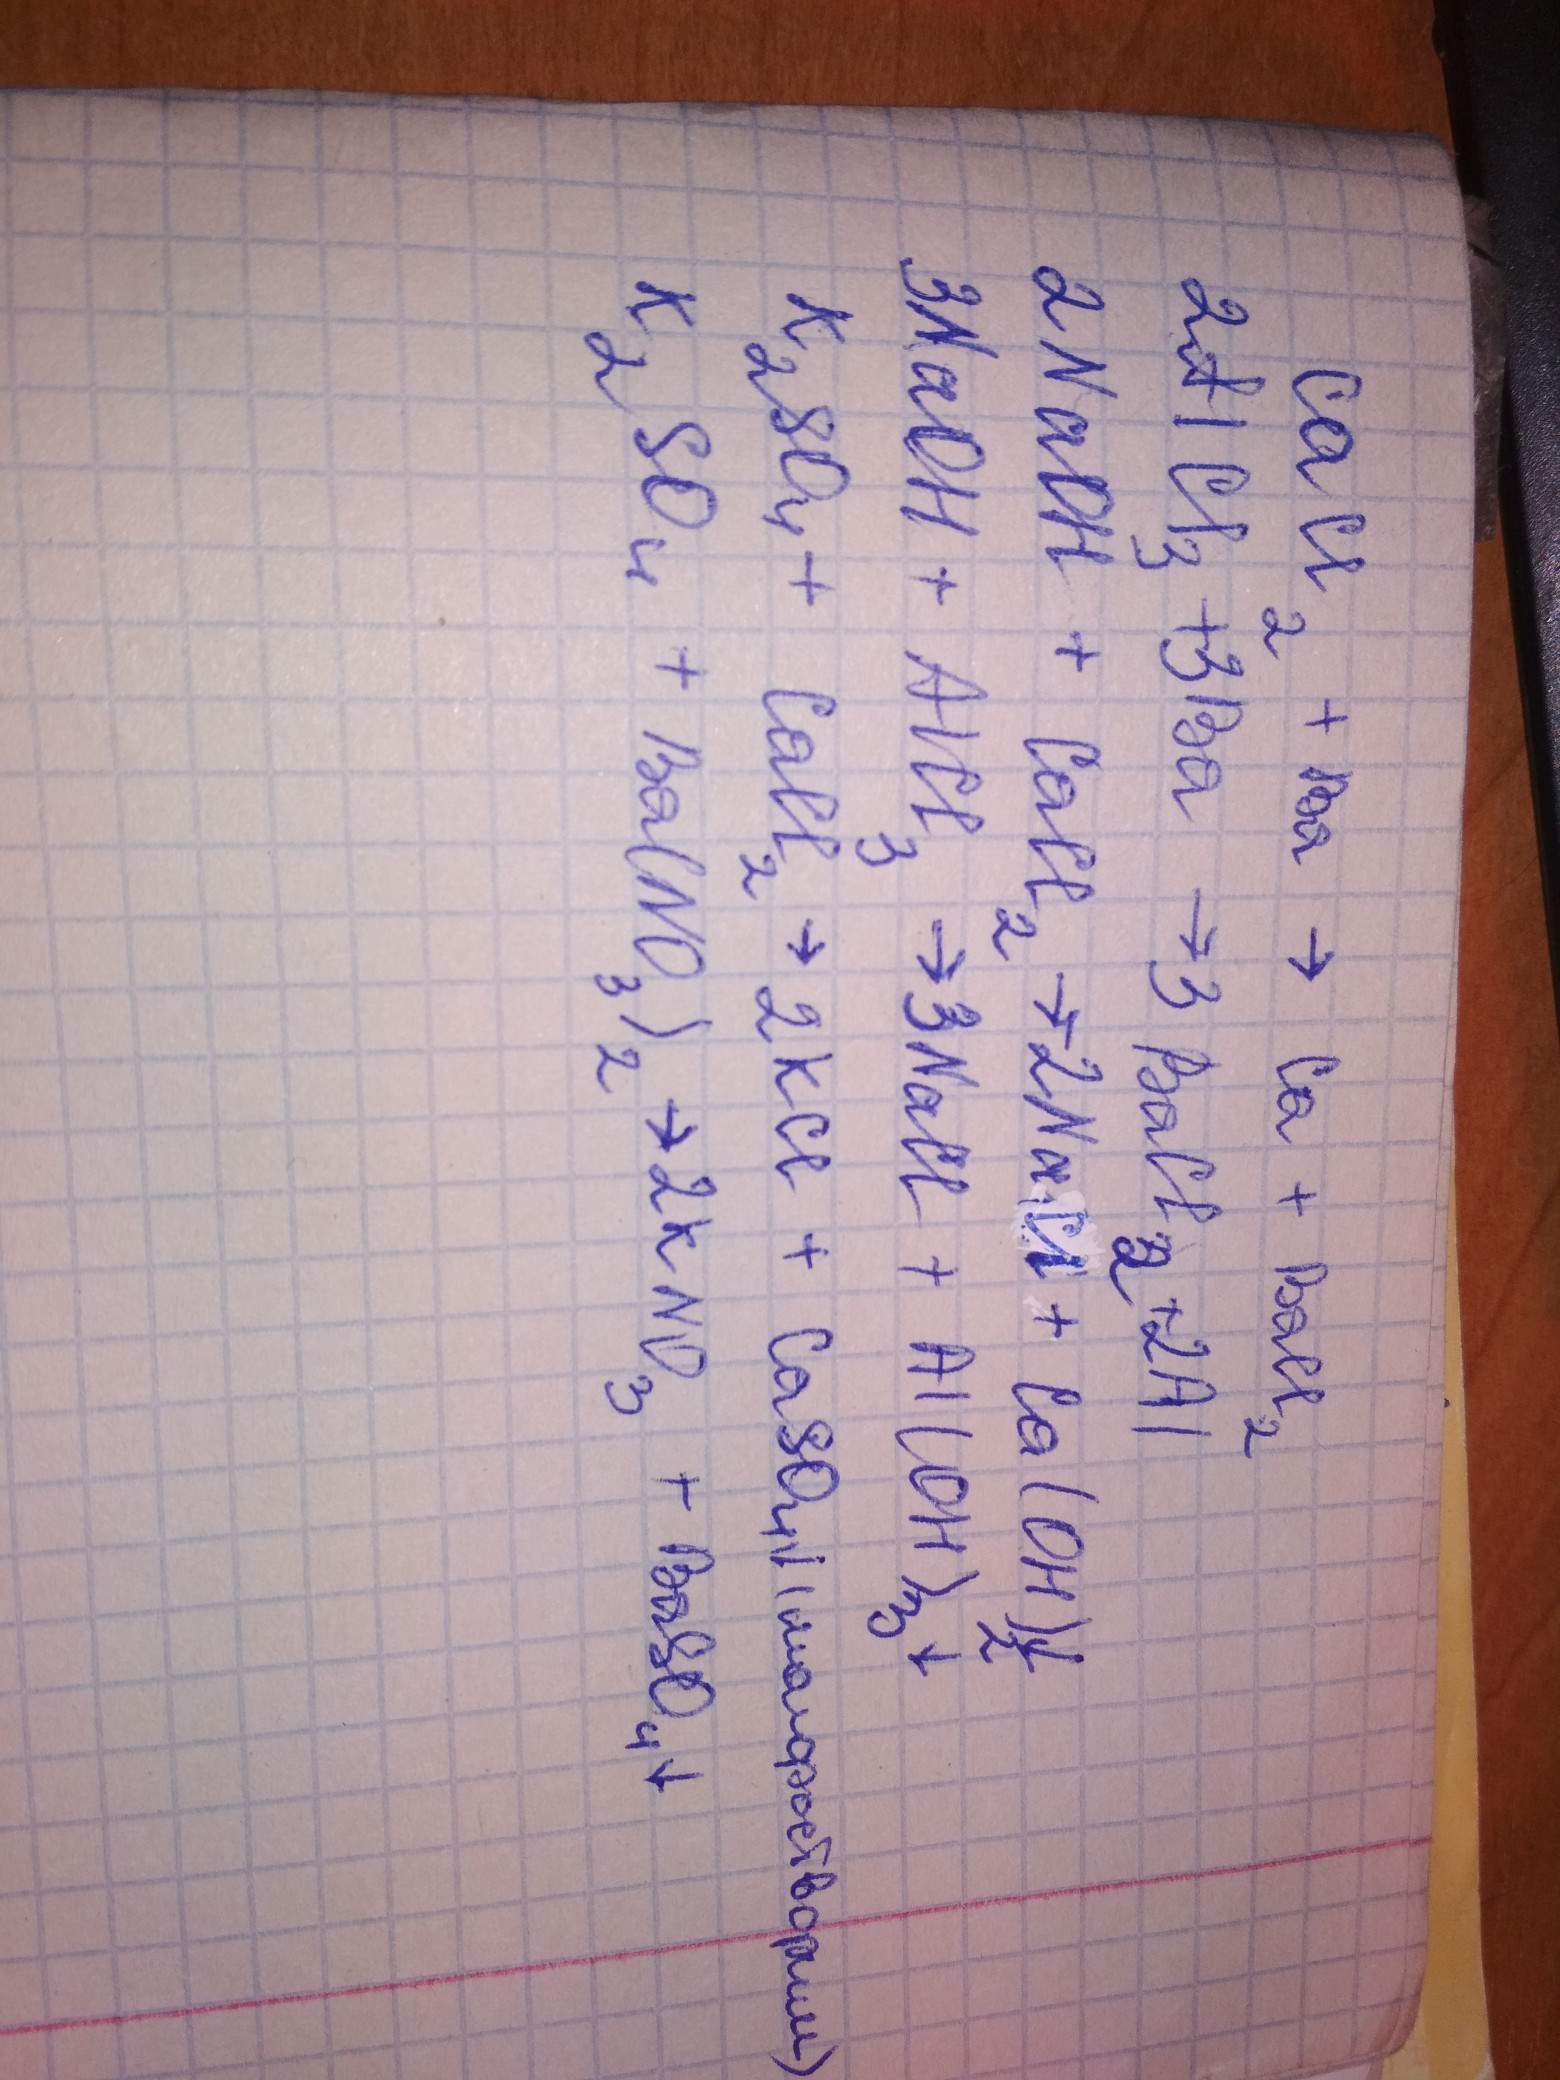 CaCl₂ + Ba → Ca + BaCl₂
2AlCl₃ + 3Ba → 3BaCl₂ + 2Al
2NaOH + CaCl₂ → 2NaCl + Ca(OH)₂↓
3NaOH + AlCl₃ → 3NaCl + Al(OH)₃↓
K₂SO₄ + CaCl₂ → 2KCl + CaSO₄↓ (малорастворим)
K₂SO₄ + Ba(NO₃)₂ → 2KNO₃ + BaSO₄↓